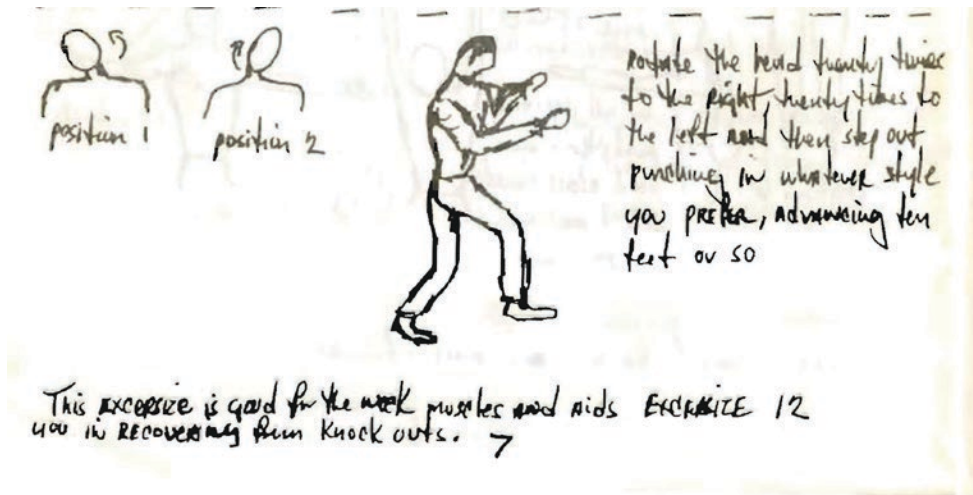 position 1
position 2
rotate the head twenty times
to the Right, twenty times to
the left and then step out
punching in whatever style
you PREFER, Advancing ten
feet or so
This EXCERSIZE is good for the neck muscles and Aids
you in RECOVERING from Knock outs.
EXCERSIZE 12
7